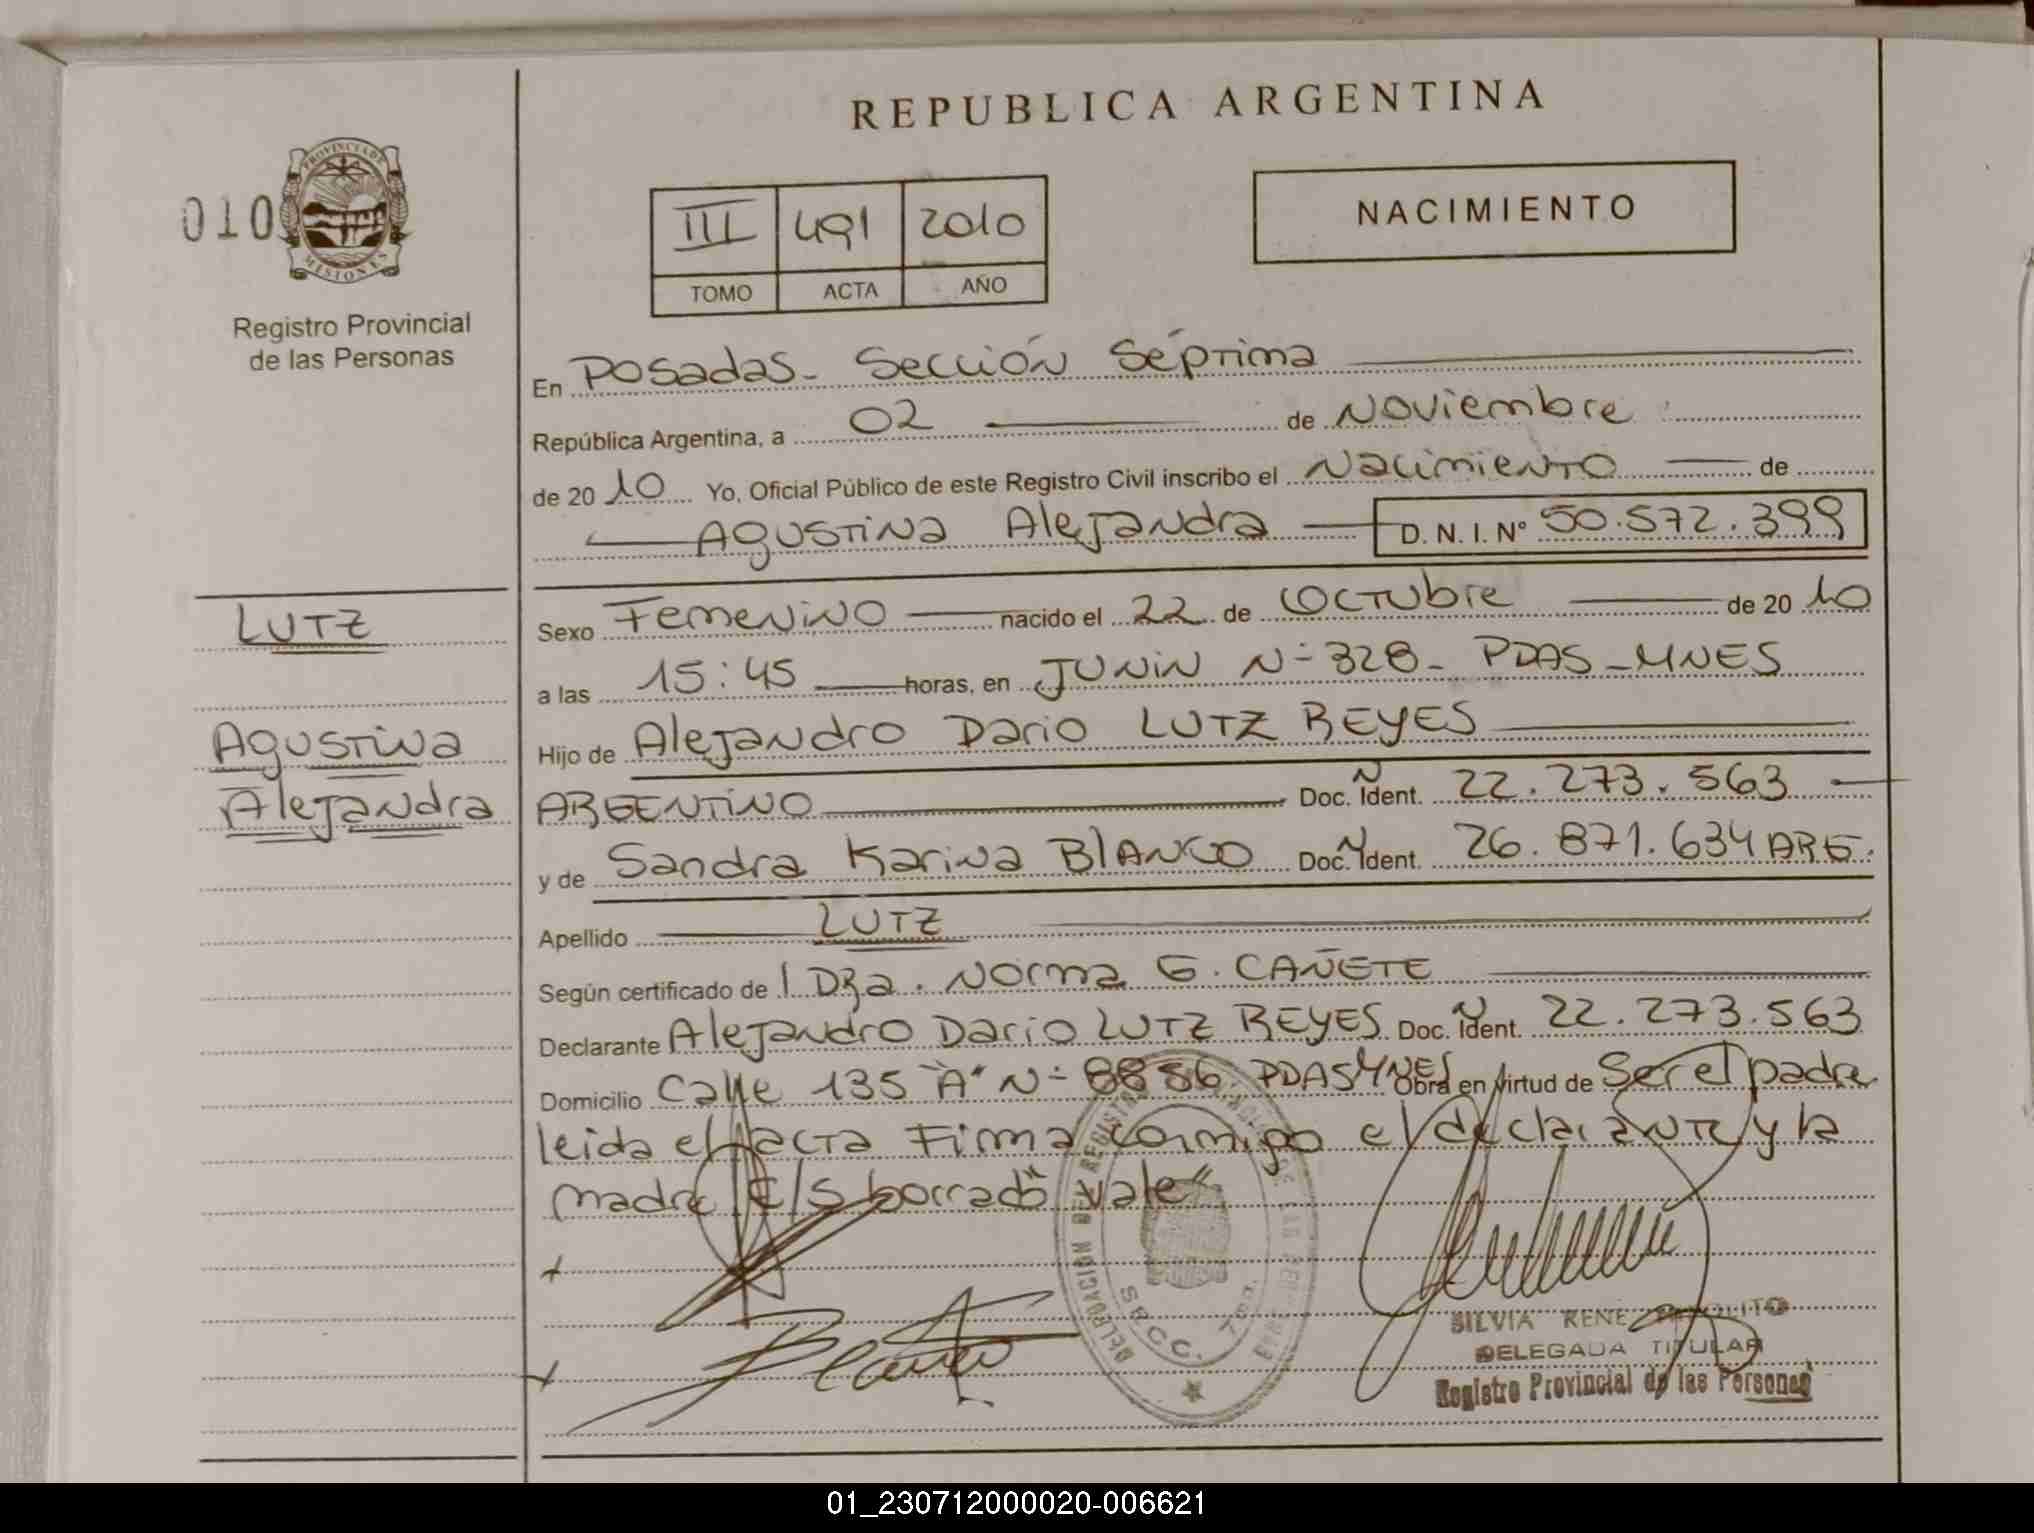 REPUBLICA ARGENTINA
010
PROVINCIA DE
MISIONES
Registro Provincial
de las Personas
III 491 2010
TOMO ACTA AÑO
NACIMIENTO
En Posadas - Sección Séptima
República Argentina, a 02 de Noviembre
de 2010 Yo, Oficial Público de este Registro Civil inscribo el Nacimiento de
Agustina Alejandra D. N. I. N° 50.572.399
LUTZ
Agustina
Alejandra
Sexo Femenino nacido el 22 de Octubre de 2010
a las 15:45 horas, en JUNIN N° 328 - PDAS - MNES
Hijo de Alejandro Dario LUTZ REYES
ARGENTINO Doc. Ñ Ident. 22.273.563
y de Sandra Karina BLANCO Doc. N Ident. 26.871.634 ARG.
Apellido LUTZ
Según certificado de Dra. Norma G. CAÑETE
Declarante Alejandro Dario LUTZ REYES Doc. N Ident. 22.273.563
Domicilio Calle 135 "A" N° 8856 PDAS MNES Obra en virtud de Ser el padre
leida el acta Firma conmigo el declarante y la
madre E/S borrado "vale"
Blanco
DELEGACION DEL REGISTRO PROVINCIAL DE LAS PERSONAS
SECC. 7ma.
SILVIA RENE
DELEGADA TITULAR
Registro Provincial de las Personas
01_230712000020-006621